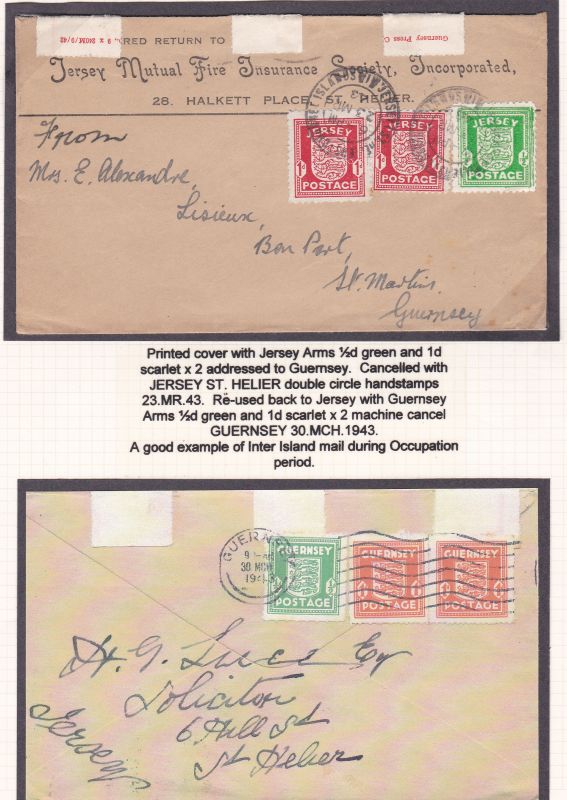 RED RETURN TO
x 9 x 240M/9/42
Guernsey Press C
Jersey Mutual Fire Insurance Society, Incorporated,
28. HALKETT PLACE, ST. HELIER.
JERSEY
1d
POSTAGE
JERSEY
1d
POSTAGE
JERSEY
½d
POSTAGE
From
Mrs. E. Alexandre,
Lisieux,
Bon Port,
St. Martins
Guernsey
Printed cover with Jersey Arms ½d green and 1d
scarlet x 2 addressed to Guernsey. Cancelled with
JERSEY ST. HELIER double circle handstamps
23.MR.43. Re-used back to Jersey with Guernsey
Arms ½d green and 1d scarlet x 2 machine cancel
GUERNSEY 30.MCH.1943.
A good example of Inter Island mail during Occupation
period.
GUERNSEY
30 MCH
194
GUERNSEY
½d
POSTAGE
GUERNSEY
1d
POSTAGE
GUERNSEY
1d
POSTAGE
H. G. Luce Esq
Solicitor
6 Hill St
St Helier
Jersey